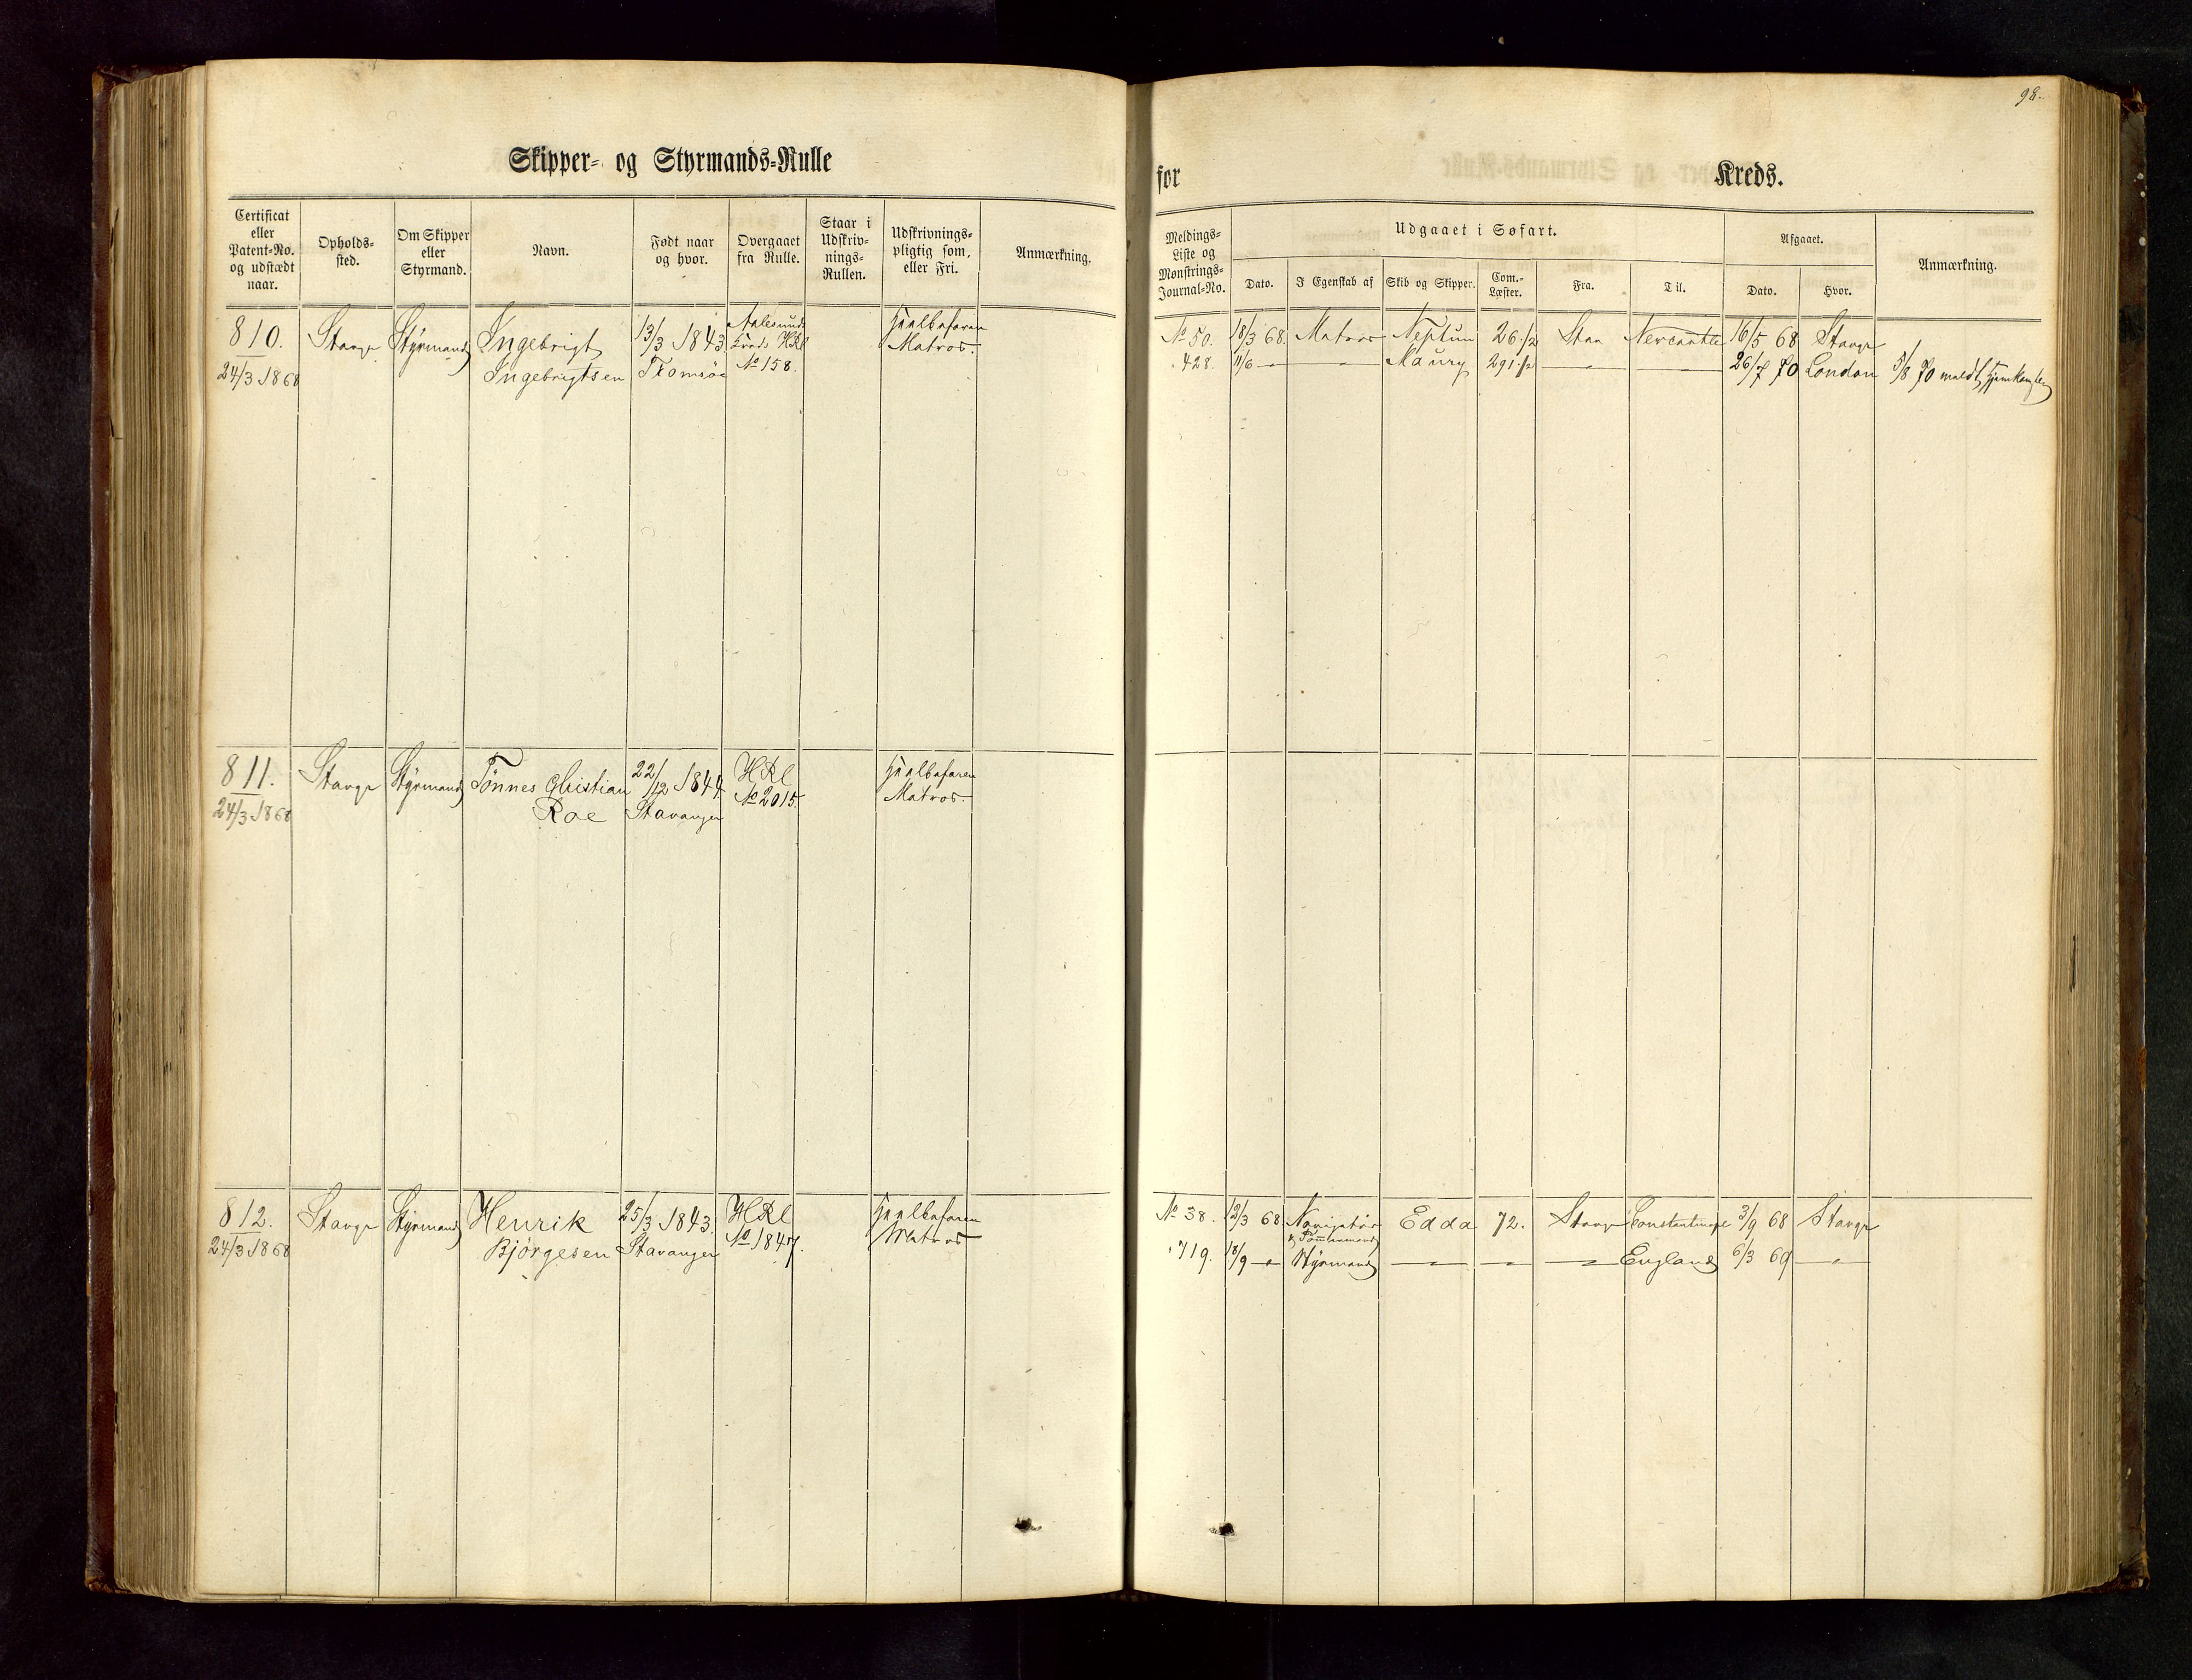 98.
Skipper- og Styrmands-Rulle
for Kreds.
Certificat eller Patent-No. og udstædt naar.
Opholds-sted.
Om Skipper eller Styrmand.
Navn.
Født naar og hvor.
Overgaaet fra Rulle.
Staar i Udskriv-nings-Rullen.
Udskrivnings-pligtig som, eller Fri.
Anmærkning.
Meldings-Liste og Mønstrings-Journal-No.
Udgaaet i Søfart.
Dato.
I Egenskab af
Skib og Skipper.
Com.-Læster.
Fra.
Til.
Afgaaet.
Dato.
Hvor.
Anmærkning.
810.
24/3 1868
Stavgr
Styrmand
Ingebrigt
Ingebrigtsen
13/3 1843
Tromsøe
Aalesunds
Kreds HRl
No 158.
Hualbefaren
Matros.
No 50. 18/3 68. Matros Neptun 26 1/2 Stav Newcastle 16/5 68 Stavgr
" 428. 11/6 — — Maury 291 1/2 — — 26/7 70 London 5/8 70 meldt Hjemkomsten
811.
24/3 1868
Stavgr
Styrmand
Tønnes Christian
Roe
22/12 1844
Stavanger
HRl
No 2015.
Hualbefaren
Matros.
812.
24/3 1868
Stavgr
Styrmand
Henrik
Bjørgesen
25/3 1843
Stavanger
HRl
No 1847.
Hualbefaren
Matros
No 38. 12/3 68 Navigatør Edda 72. Stavgr Constantinope 3/9 68 Stavgr
& Tømmermand
" 719. 18/9 — Styrmand — — — England 6/3 69 — " —